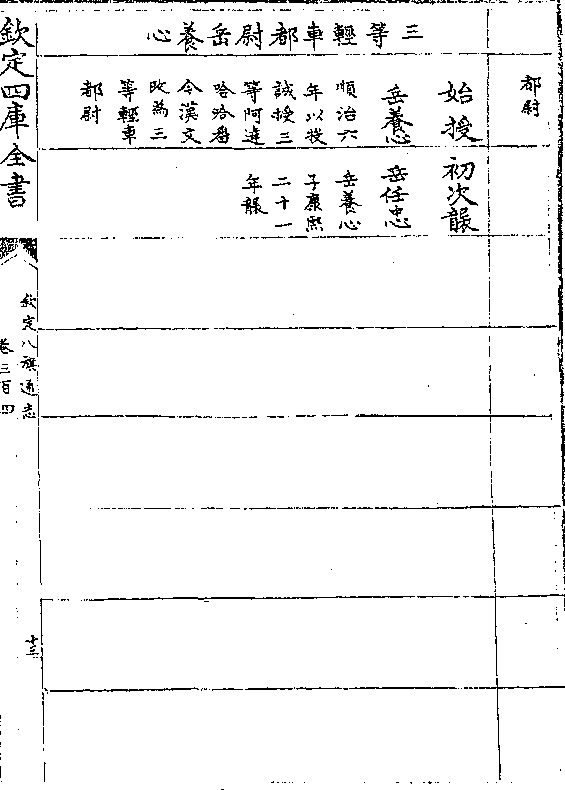 都尉
三等輕車都尉岳養心
始授
岳養心
順治六
年以投
誠授三
等阿達
哈哈番
今漢文
改為三
等輕車
都尉
初次襲
岳任忠
岳養心
子康熙
二十一
年襲
欽定四庫全書
欽定八旗通志
卷三百四
十三